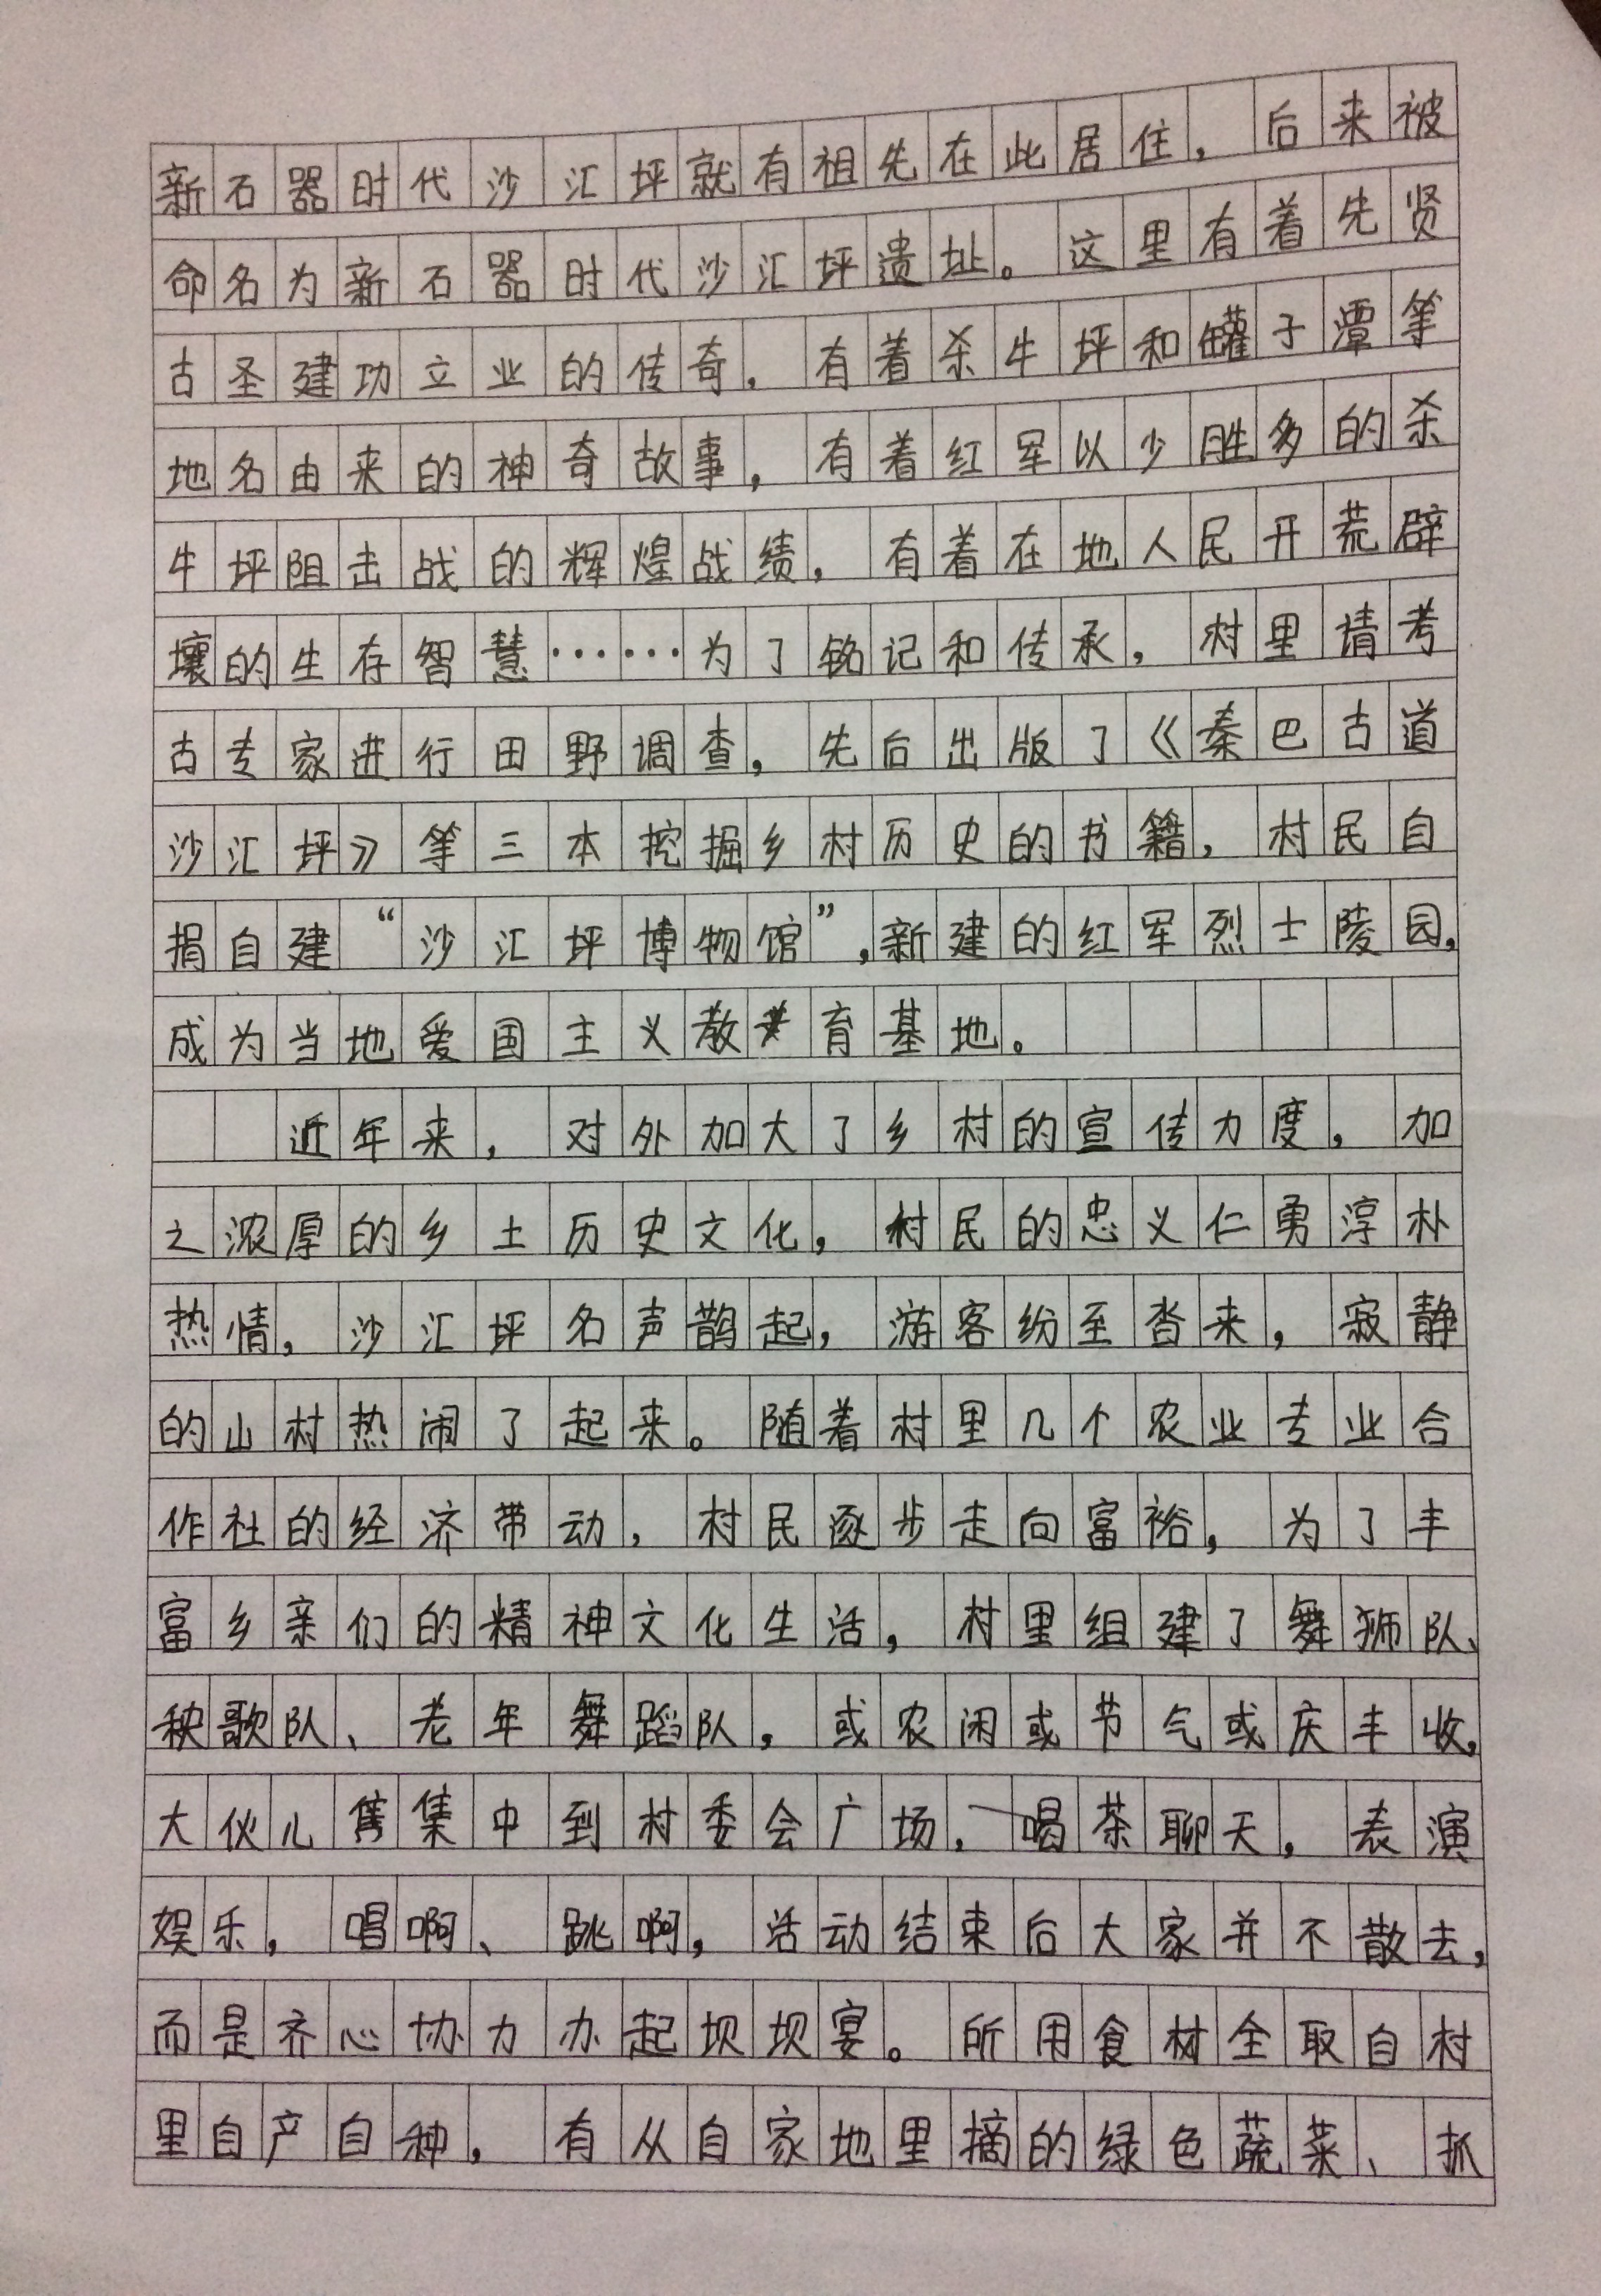 新石器时代沙汇坪就有祖先在此居住，后来被
命名为新石器时代沙汇坪遗址。这里有着先贤
古圣建功立业的传奇，有着杀牛坪和罐子潭等
地名由来的神奇故事，有着红军以少胜多的杀
牛坪阻击战的辉煌战绩，有着在地人民开荒辟
壤的生存智慧……为了铭记和传承，村里请考
古专家进行田野调查，先后出版了《秦巴古道
沙汇坪》等三本挖掘乡村历史的书籍，村民自
捐自建“沙汇坪博物馆”，新建的红军烈士陵园，
成为当地爱国主义教育基地。
近年来，对外加大了乡村的宣传力度，加
之浓厚的乡土历史文化，村民的忠义仁勇淳朴
热情，沙汇坪名声鹊起，游客纷至沓来，寂静
的山村热闹了起来。随着村里几个农业专业合
作社的经济带动，村民逐步走向富裕，为了丰
富乡亲们的精神文化生活，村里组建了舞狮队、
秧歌队、老年舞蹈队，或农闲或节气或庆丰收，
大伙儿隽集中到村委会广场，喝茶聊天，表演
娱乐，唱啊、跳啊，活动结束后大家并不散去，
而是齐心协力办起坝坝宴。所用食材全取自村
里自产自种，有从自家地里摘的绿色蔬菜、抓